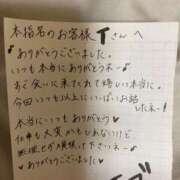 本指名のお客様 Tさんへ
ありがとうございました。
いつも本当にありがとうネー♪
すぐ会いに来てくれて嬉しい本当に。
今回いつも以上にいっぱいお話
したネー!
本当にいつもありがとう
仕事も大変かもしれないけど
無理せず頑張って下さいネー♪
♡ありがとうございました♡